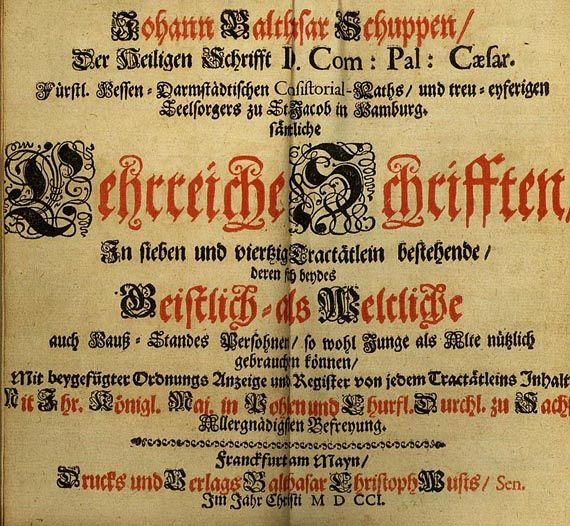 Johann Balthsar Schuppen/
Der Heiligen Schrifft D. Com: Pal: Cæsar.
Fürstl. Hessen-Darmstädtischen Cosistorial-Raths/ und treu-eyferigen
Seelsorgers zu St Jacob in Hamburg.
sämtliche
Lehrreiche Schrifften,
In sieben und viertzig Tractätlein bestehende/
deren sich beydes
Geistlich-als Weltliche
auch Hauß-Standes Personen/ so wohl Junge als Alte nützlich
gebrauchen können/
Mit beygefügter Ordnungs Anzeige und Register von jedem Tractätleins Inhalt
Mit Ihr. Königl. Maj. in Pohlen und Churfl. Durchl. zu Sachs
Allergnädigsten Befreyung.
Franckfurt am Mayn/
Drucks und Verlags Balthasar Christoph Wusts/ Sen.
Im Jahr Christi M D CCI.